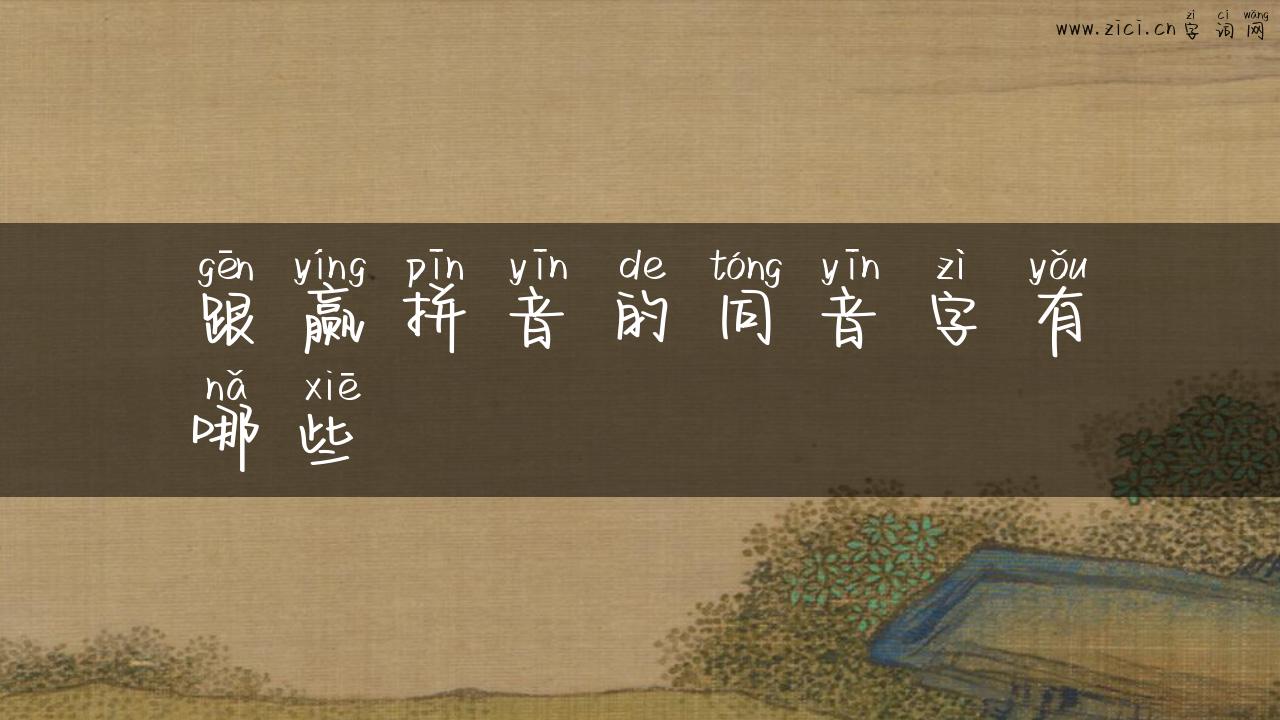 zì cí wǎng
www.zici.cn 字词网
gēn yíng pīn yīn de tóng yīn zì yǒu
跟赢拼音的同音字有
nǎ xiē
哪些